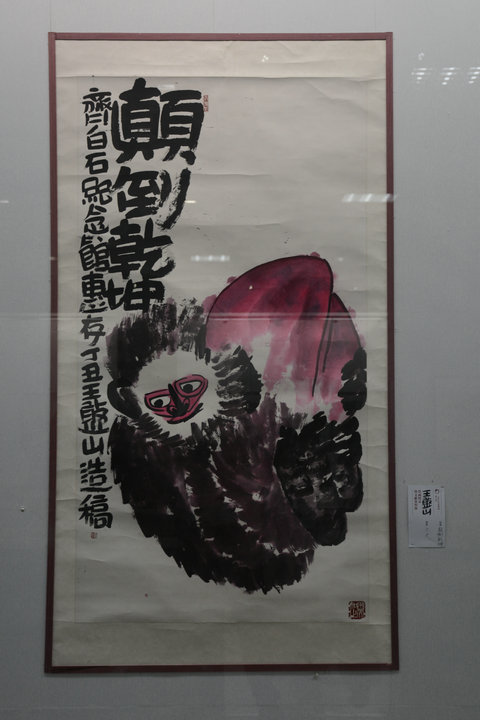 顛倒乾坤
齊白石紀念館惠存丁丑王憨山造稿
王憨山